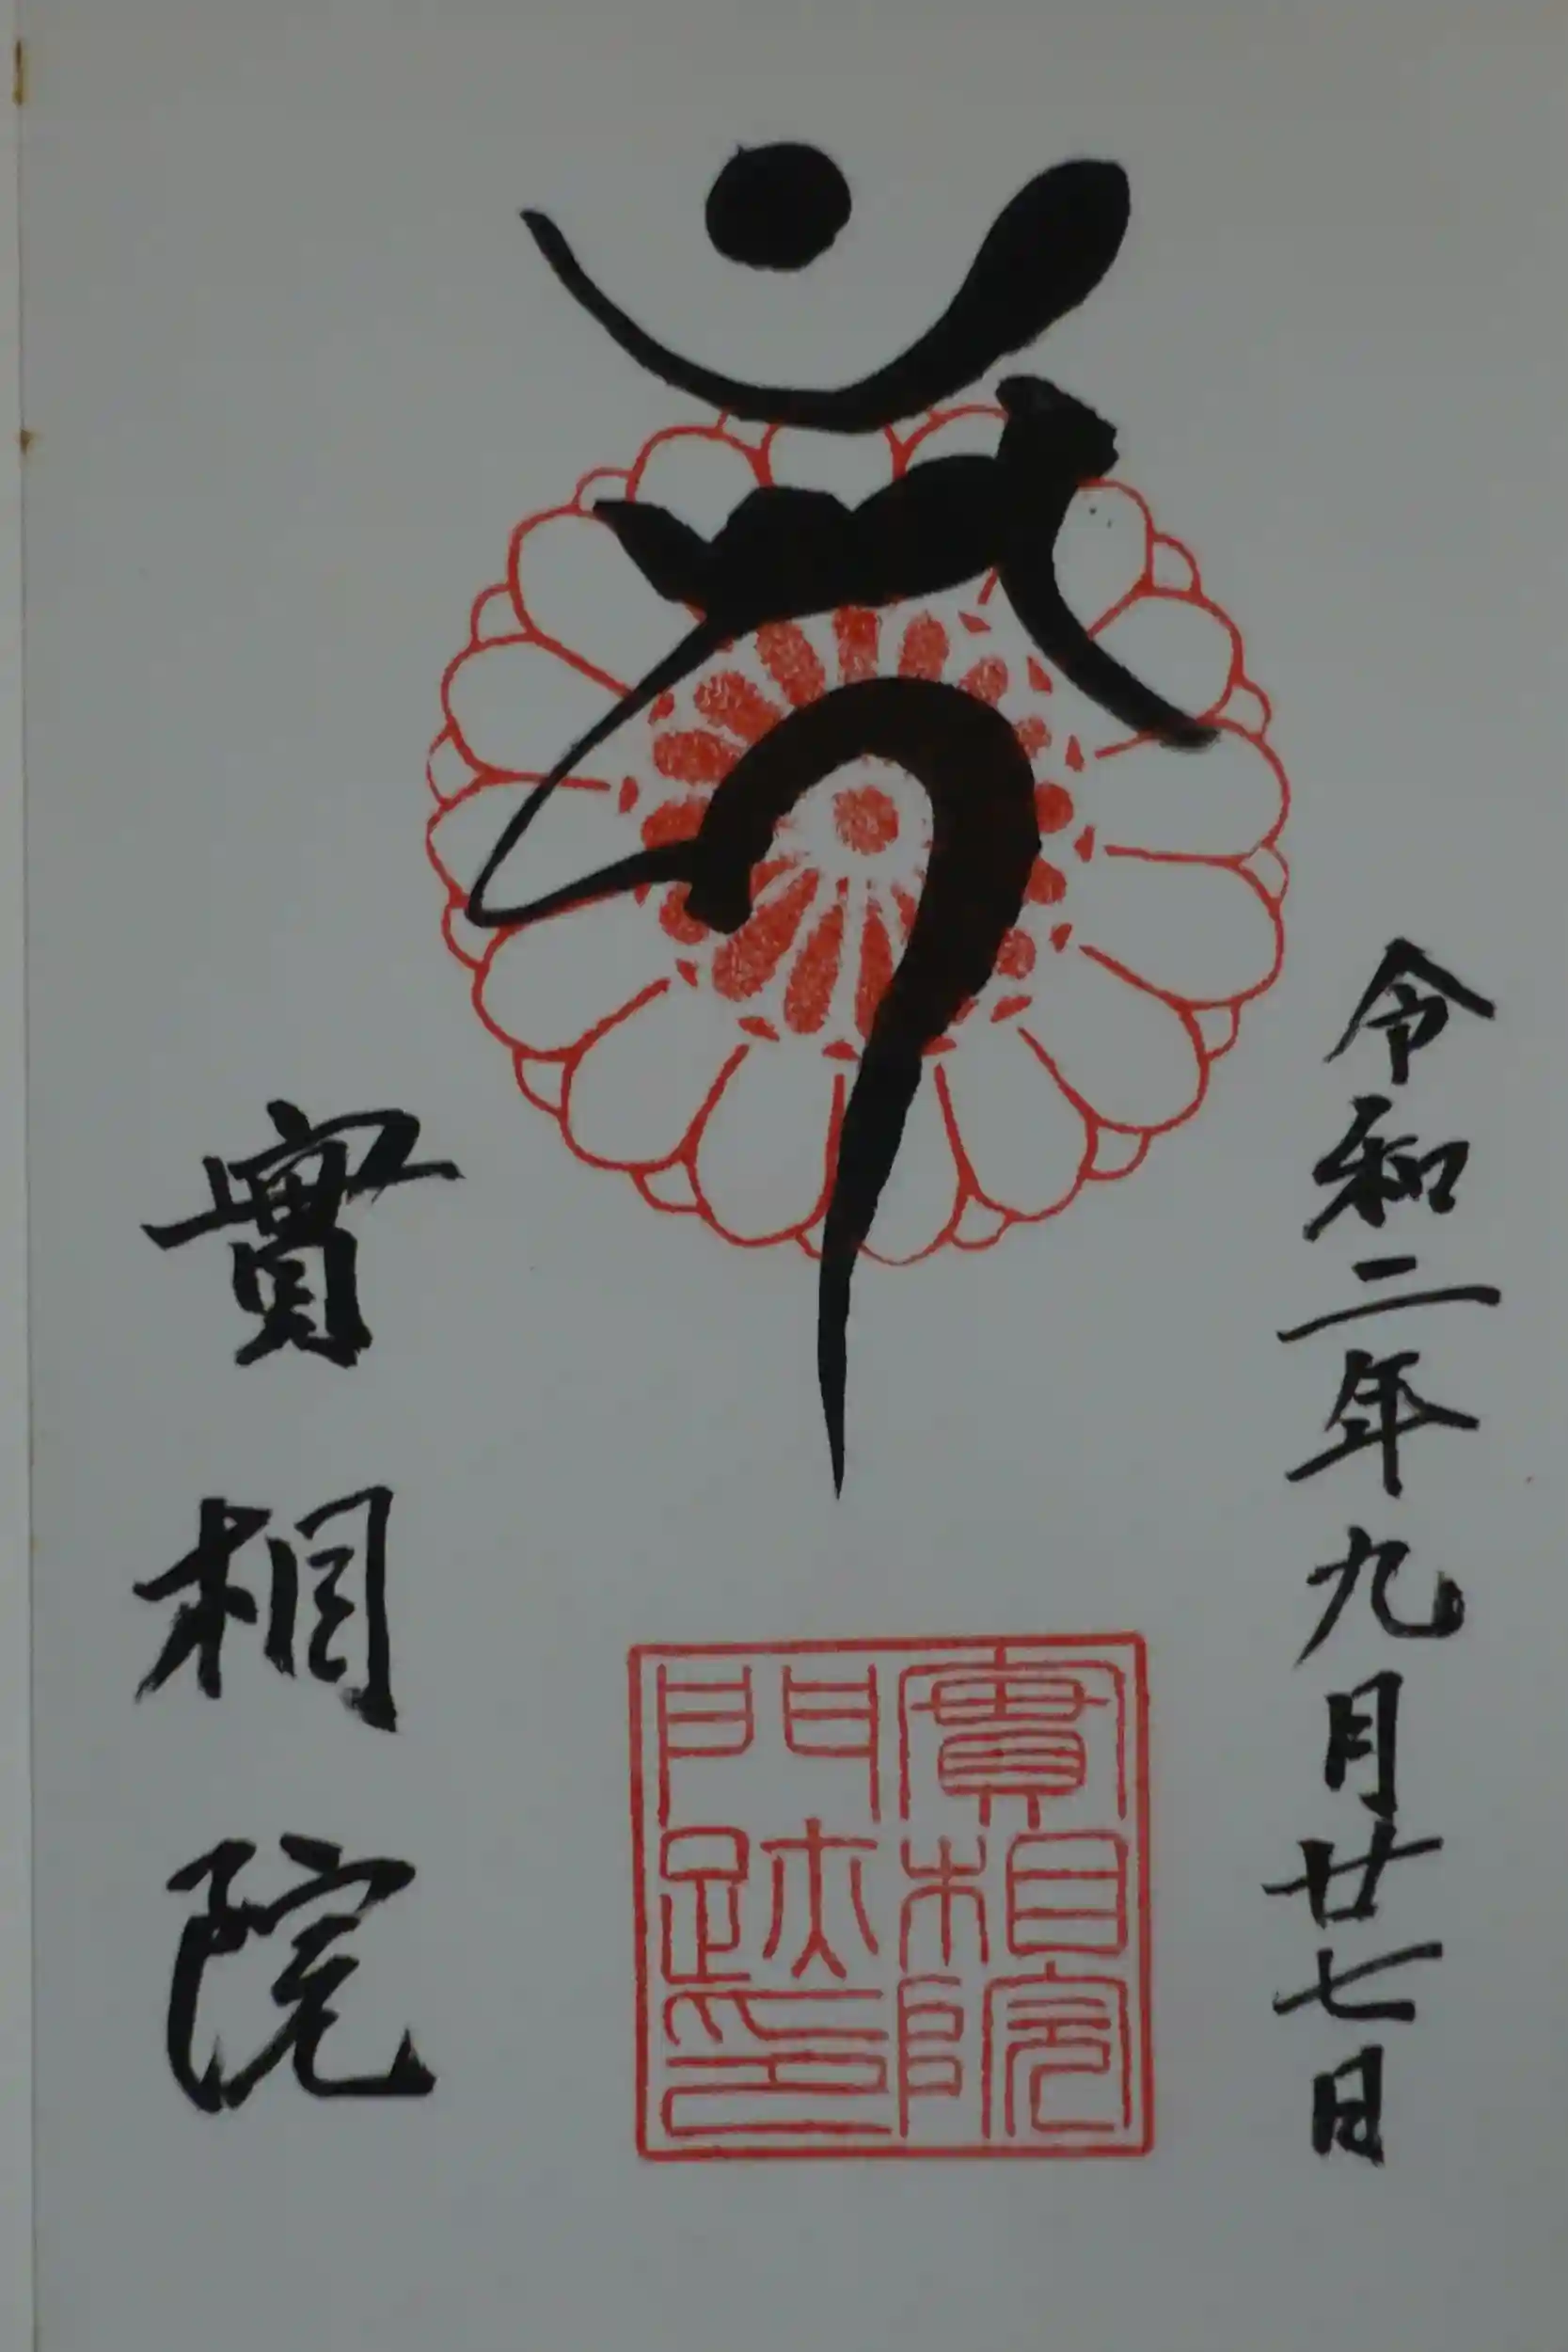 令和二年九月廿七日
𑖮𑖯𑖽
實相院
門跡印
實相院